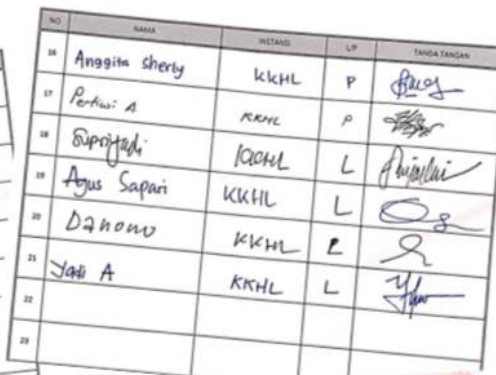 NO NAMA INSTANSI L/P TANDA TANGAN
16 Anggita sherly KKHL P
17 Pertiwi A KKHL P
18 Supriyadi KKHL L
19 Agus Sapari KKHL L
20 Danomo KKHL L
21 Yadi A KKHL L
22
23